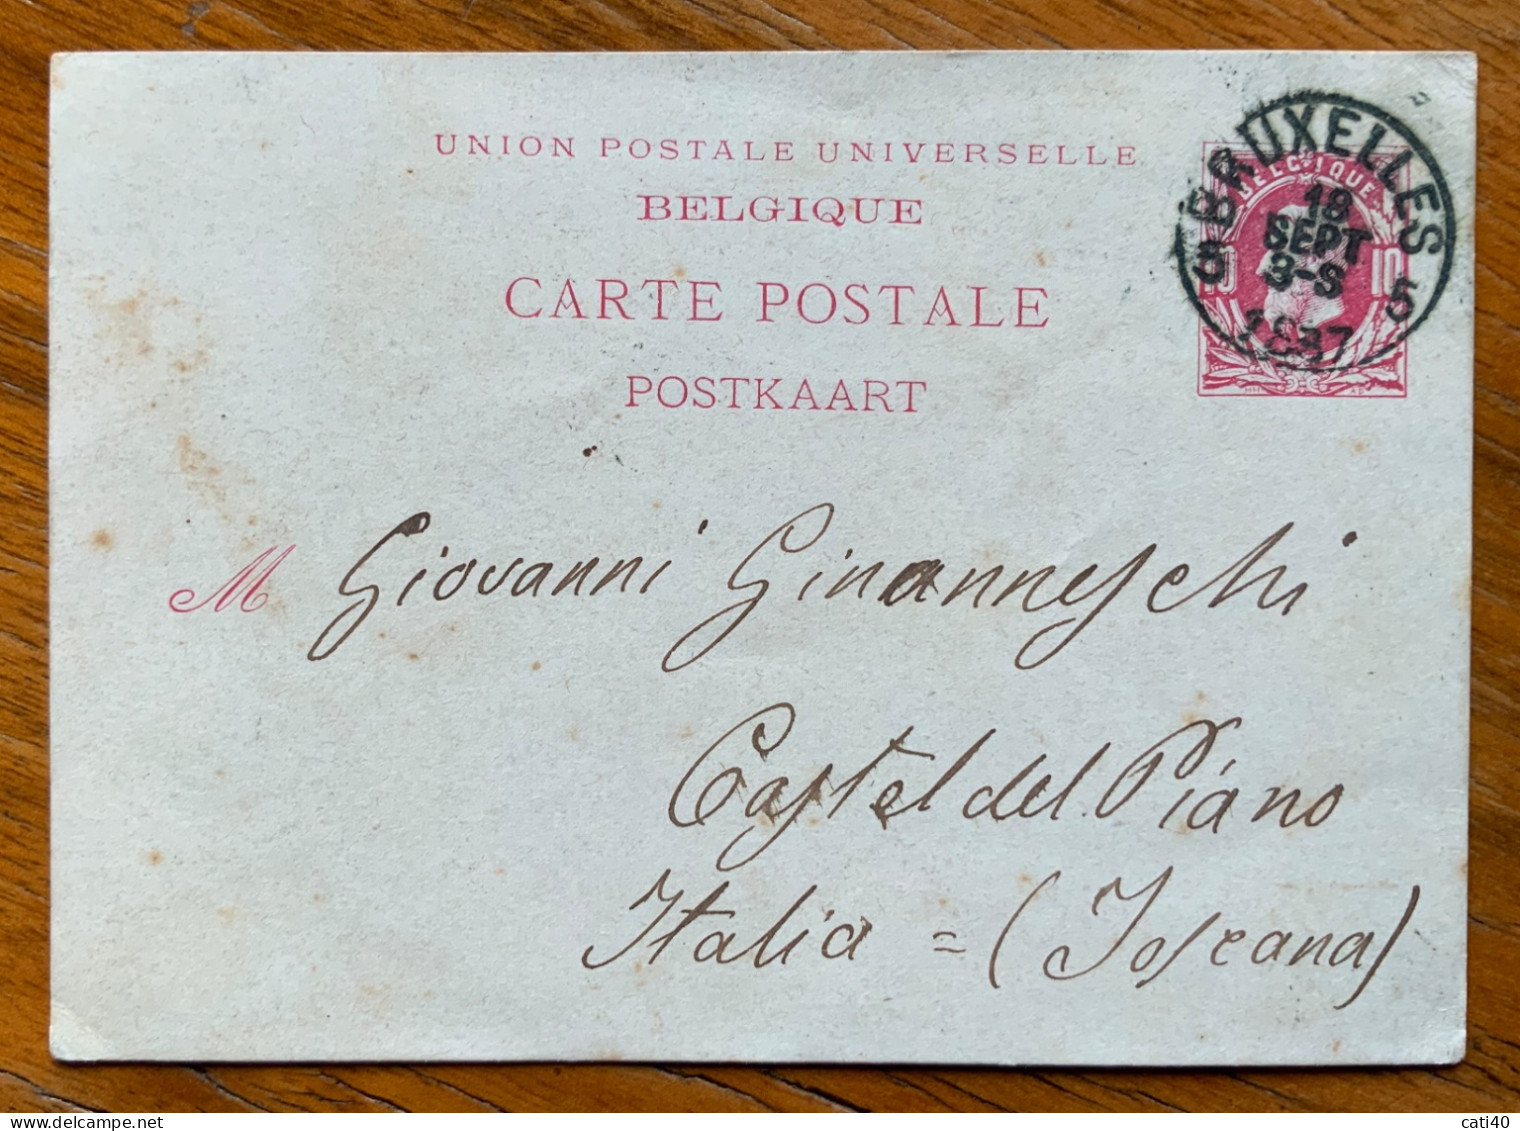 UNION POSTALE UNIVERSELLE
BELGIQUE
CARTE POSTALE
POSTKAART
BRUXELLES
5 5
18
SEPT
8-S
1887
BELGIQUE
10 10
M Giovanni Ginanneschi
Castel del Piano
Italia = (Toscana)
cati40